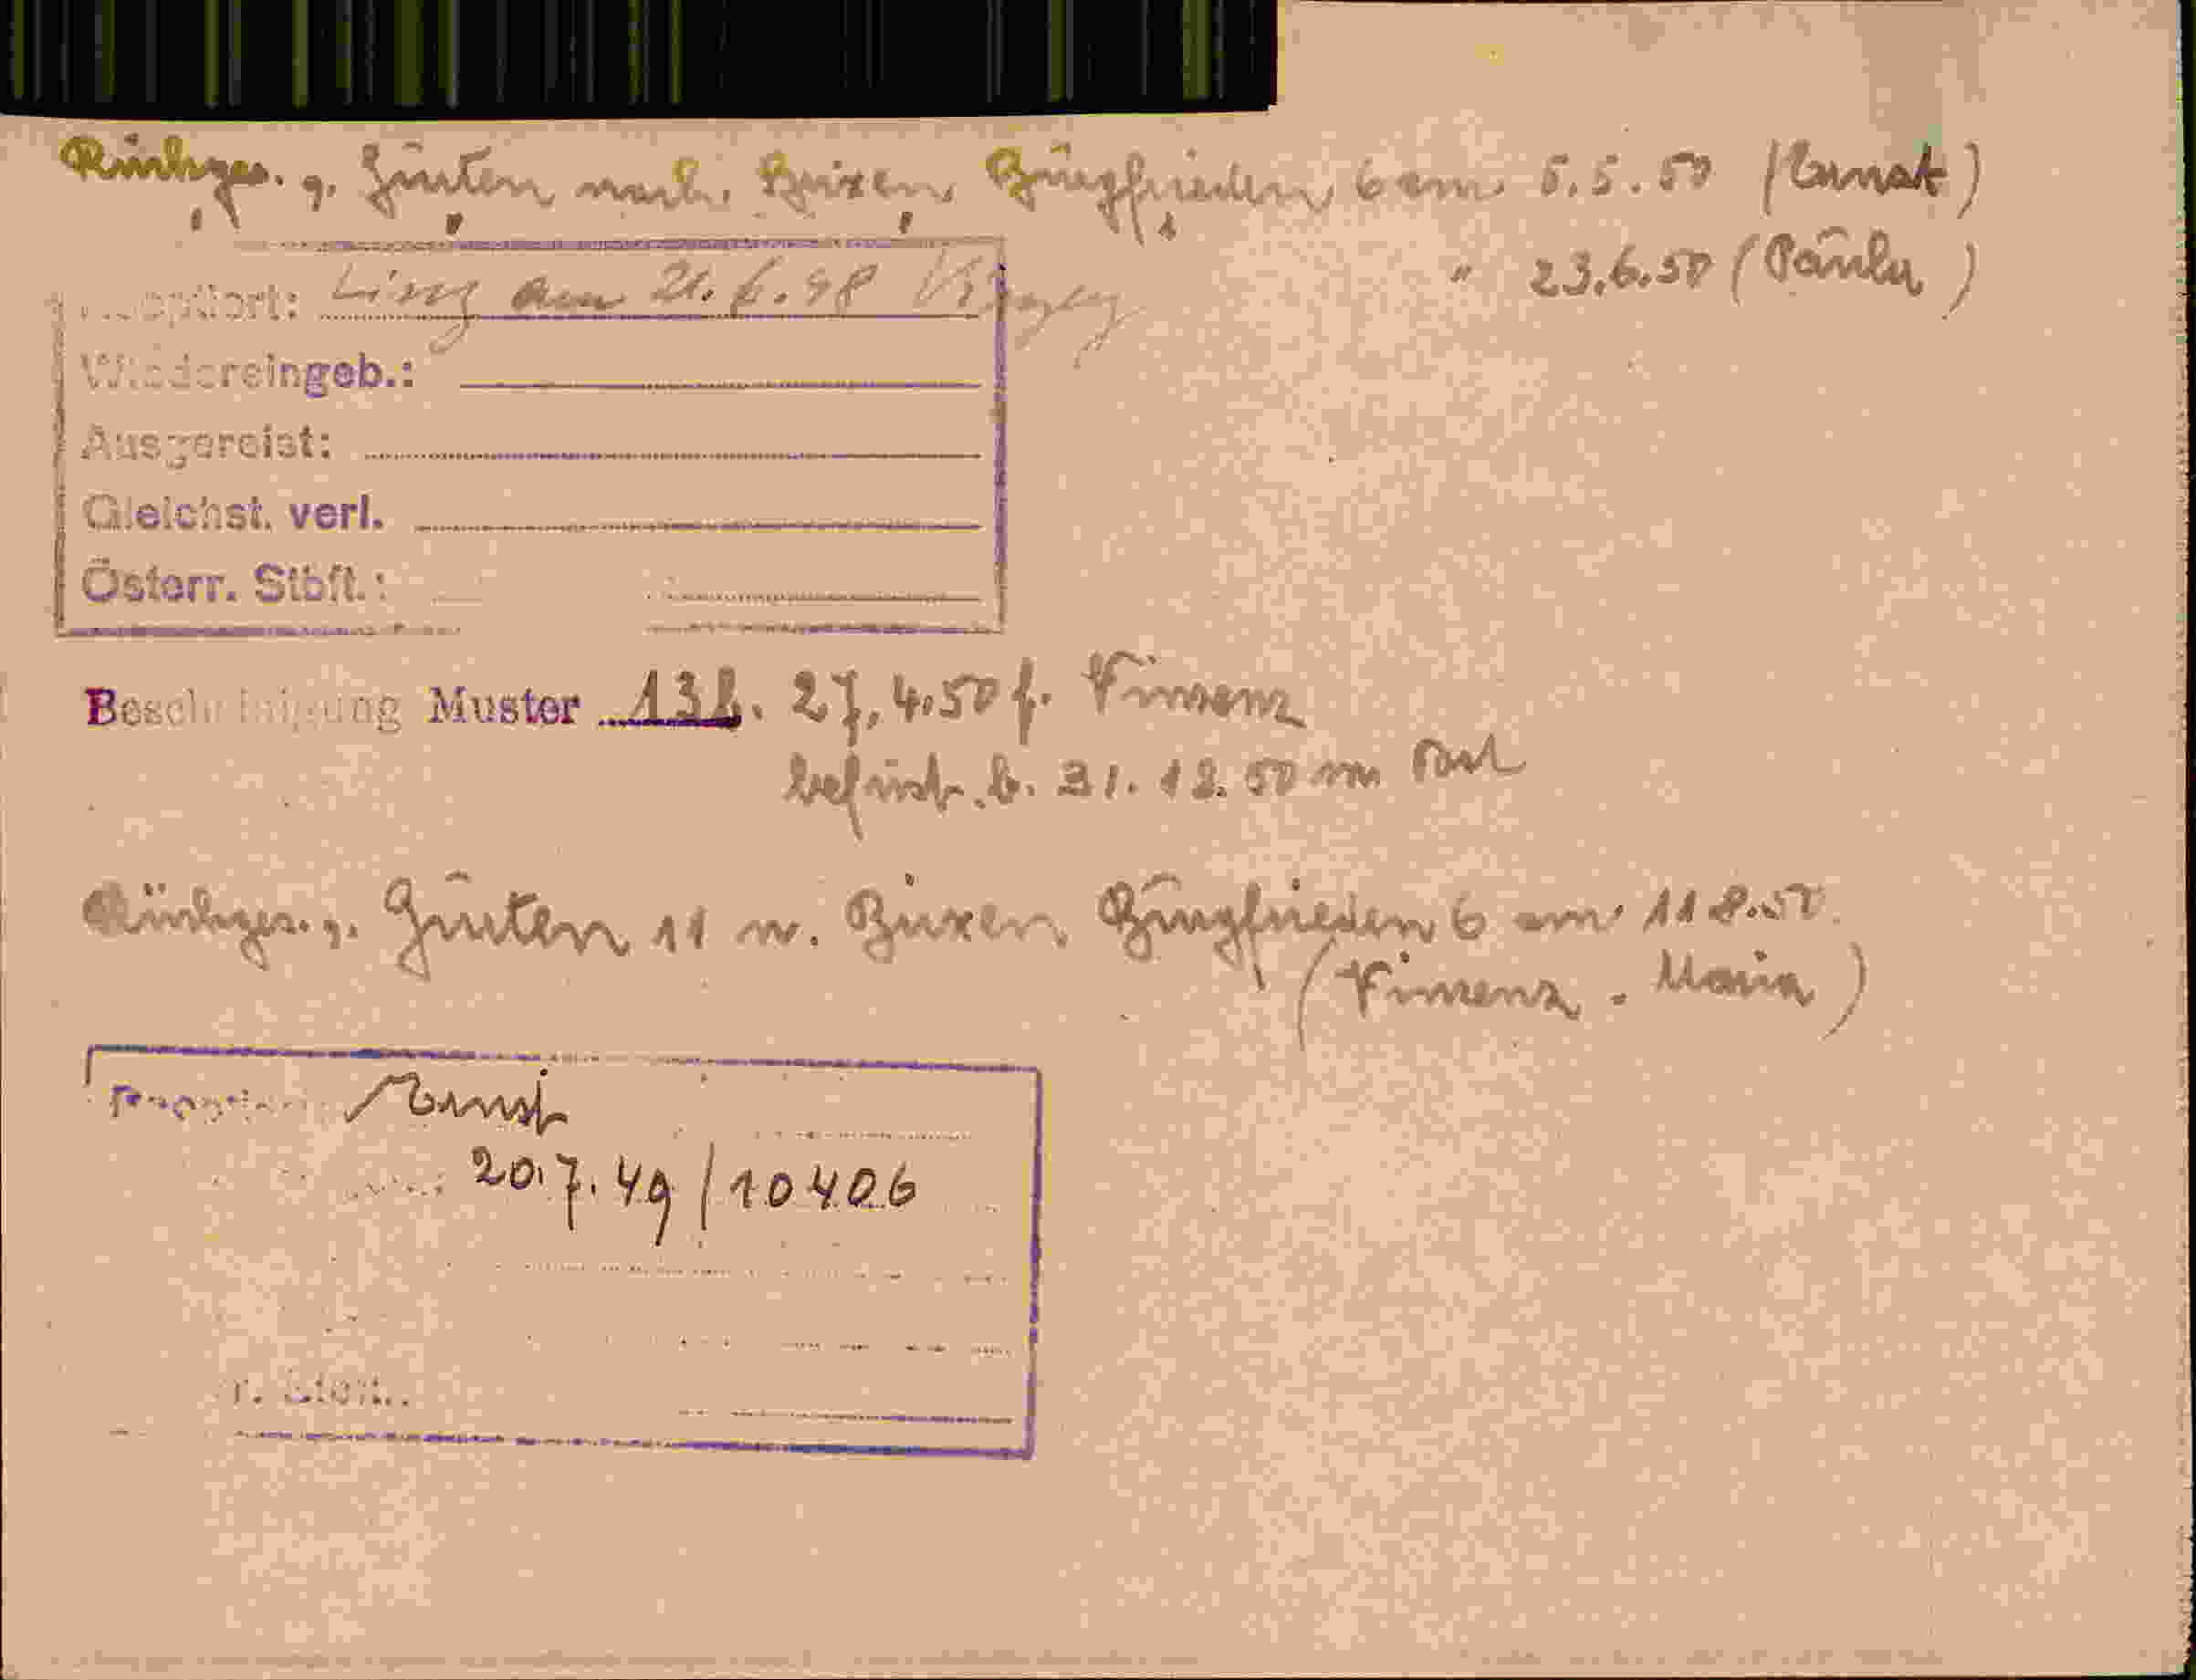 Rückges. g. Gurten nach Brixen Burgfrieden 6 am 5.5.50 (Ernst)
" 23.6.50 (Paula)
Reoptiert: Linz am 21.6.48
Wiedereingeb.:
Ausgereist:
Gleichst. verl.
Österr. Stbft.:
Bescheinigung Muster 13b. 27.4.50 f. Vinzenz
befrist. b. 31.12.50
Rückges. g. Gurten 11 n. Brixen Burgfrieden 6 am 11.8.50.
(Vinzenz - Maria)
Reoptiert: Ernst
20.7.49/10406